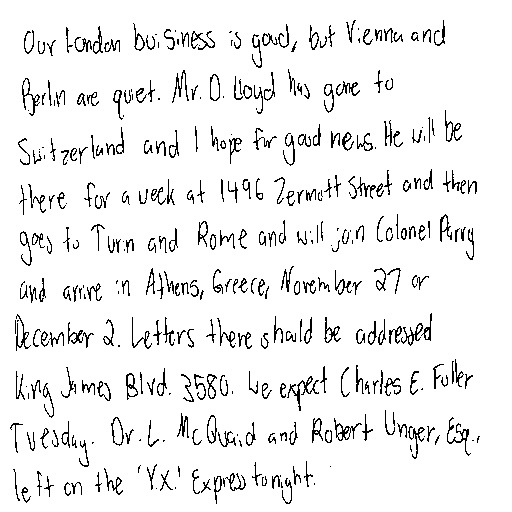 Our London buisiness is good, but Vienna and
Berlin are quiet. Mr. D. Lloyd has gone to
Switzerland and I hope for good news. He will be
there for a week at 1496 Zermott Street and then
goes to Turin and Rome and will join Colonel Parry
and arrive in Athens, Greece, November 27 or
December 2. Letters there should be addressed
King James Blvd. 3580. We expect Charles E. Fuller
Tuesday. Dr. L. McQuaid and Robert Unger, Esq.,
left on the 'Y.X.' Express tonight.